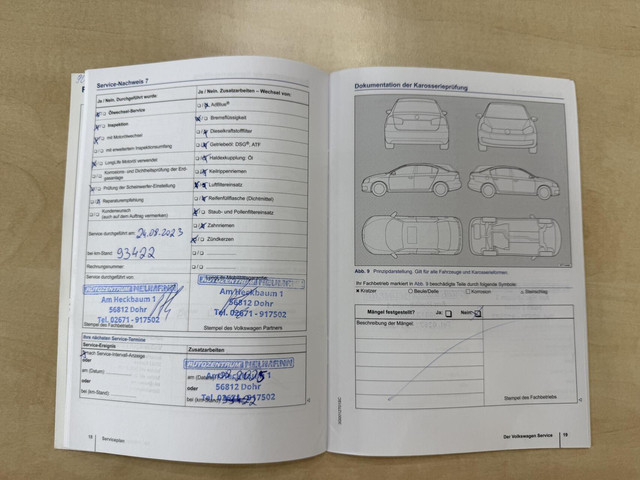 Service-Nachweis 7
Ja / Nein. Durchgeführt wurde:
Ölwechsel-Service
Inspektion
mit Motorölwechsel
mit erweitertem Inspektionsumfang
LongLife Motoröl verwendet
Korrosions- und Dichtheitsprüfung der Erdgasanlage
Prüfung der Scheinwerfer-Einstellung
Reparaturempfehlung
Kundenwunsch
(auch auf dem Auftrag vermerken)
Service durchgeführt am: 24.08.2023
bei km-Stand: 93422
Rechnungsnummer:
Service durchgeführt von:
Am Heckbaum 1
56812 Dohr
Tel. 02671 - 917502
Stempel des Fachbetriebs
Ja / Nein. Zusatzarbeiten – Wechsel von:
AdBlue®
Bremsflüssigkeit
Dieselkraftstofffilter
Getriebeöl: DSG®, ATF
Haldexkupplung: Öl
Keilrippenriemen
Luftfiltereinsatz
Reifenfüllflasche (Dichtmittel)
Staub- und Pollenfiltereinsatz
Zahnriemen
Zündkerzen
Am Heckbaum 1
56812 Dohr
Tel. 02671 - 917502
Stempel des Volkswagen Partners
Ihre nächsten Service-Termine
Service-Ereignis
nach Service-Intervall-Anzeige
oder
am (Datum)
oder
bei (km-Stand)
Zusatzarbeiten
am (Datum)
oder
56812 Dohr
Tel. 02671 - 917502
bei (km-Stand)
18 Serviceplan
Dokumentation der Karosserieprüfung
Abb. 9 Prinzipdarstellung. Gilt für alle Fahrzeuge und Karosserieformen.
Ihr Fachbetrieb markiert in Abb. 9 beschädigte Teile durch folgende Symbole:
Kratzer Beule/Delle Korrosion Steinschlag
Mängel festgestellt? Ja: Nein:
Beschreibung der Mängel:
Stempel des Fachbetriebs.
Der Volkswagen Service 19